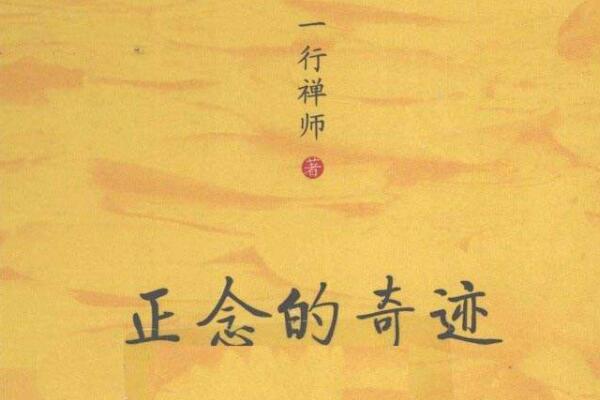 一行禅师
著
正念的奇迹